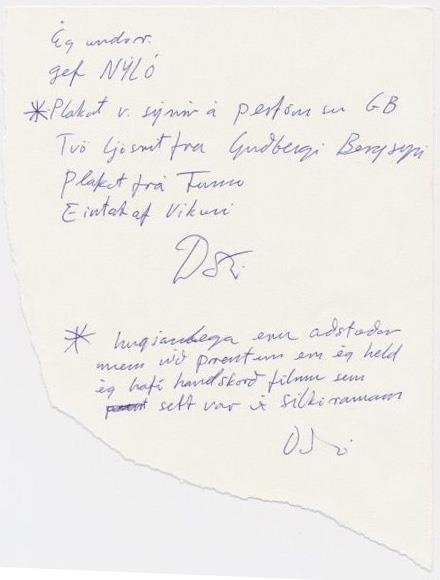 Ég undirr.
gef NÝLÓ
*Plakat v. sýnin á perfom su GB
Tvö ljósrit frá Guðbergi Bergssyni
Plakat frá Fumo
Eintak af Vikuni
* hugsanlega eru aðstæður
með við prentun en ég held
ég hafi handskorð filmu sem
sett var í silkiramann